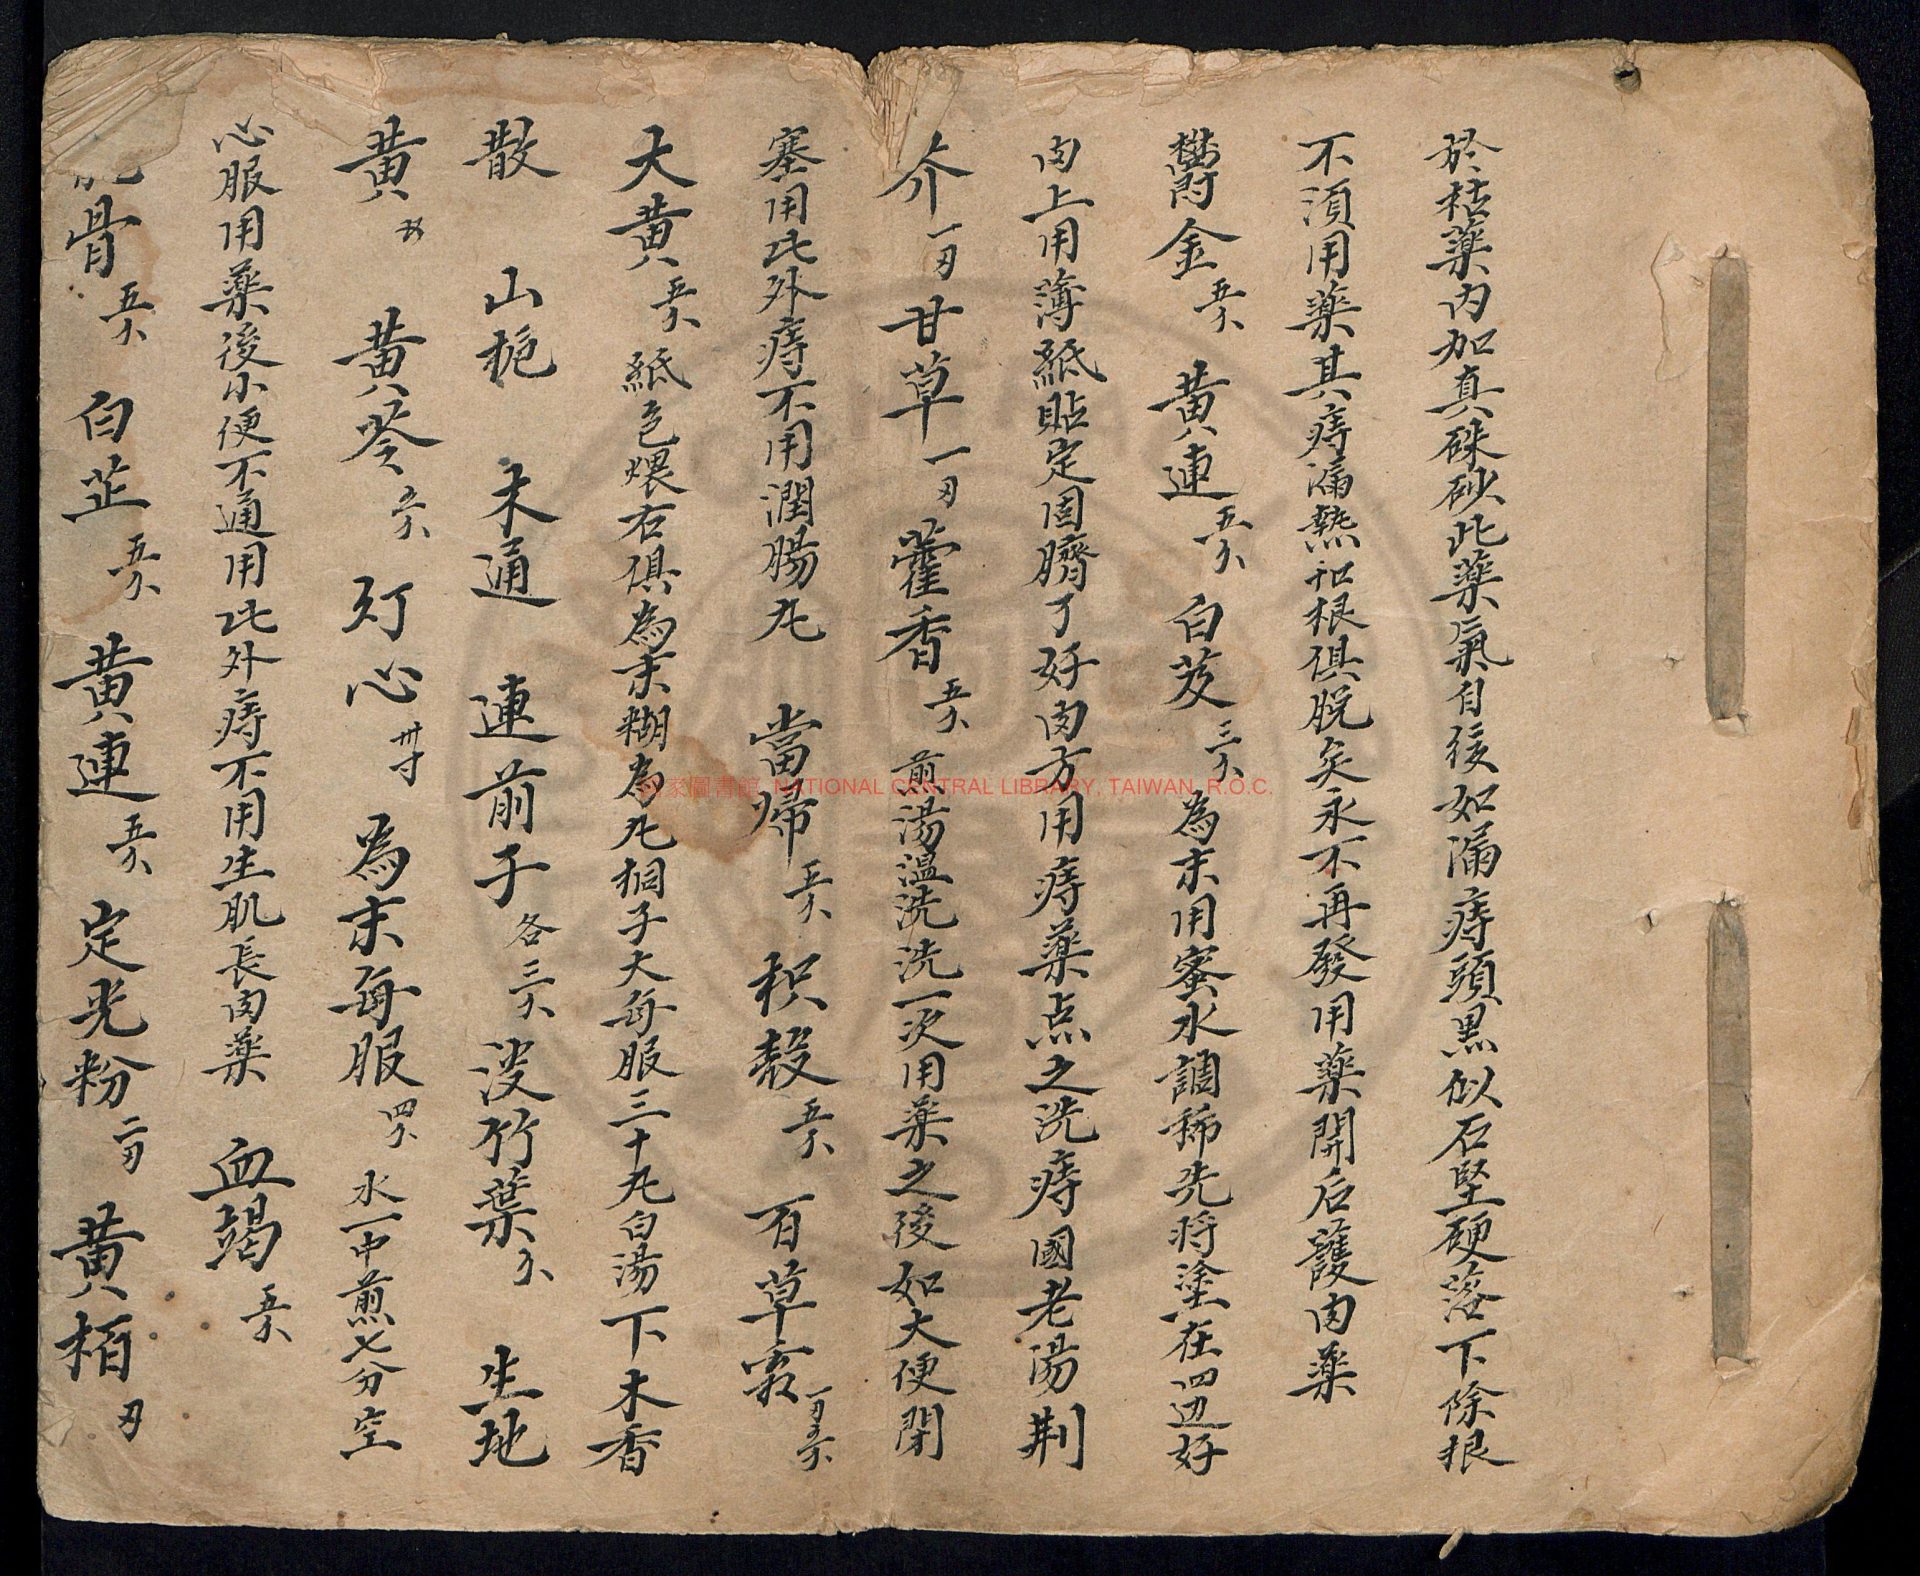 於枯藥內加真硃砂此藥氣自後如漏痔頭黑似石堅硬落下除根
不須用藥其痔漏熱和根俱脫矣永不再發用藥開后護肉藥
欝金 黃連 白芨 為末用蜜水調稀先將塗在四边好
肉上用薄紙貼定固臍了好肉方用痔藥点之洗痔國老湯荆
介 甘草 藿香 煎湯溫洗洗一次用藥之後如大便閉
塞用此外痔不用潤腸丸 當帰 枳殼 百草霜
大黃 紙包煨右俱為末糊為丸桐子大每服三十丸白湯下木香
散 山梔 木通 連前子 各三 淡竹葉 生地
黃 黃芩 灯心 為末每服 水一中煎七分空
心服用藥後小便不通用此外痔不用生肌長肉藥 血竭
骨 白芷 黃連 定光粉 黃栢
國家圖書館, NATIONAL CENTRAL LIBRARY, TAIWAN, R.O.C.